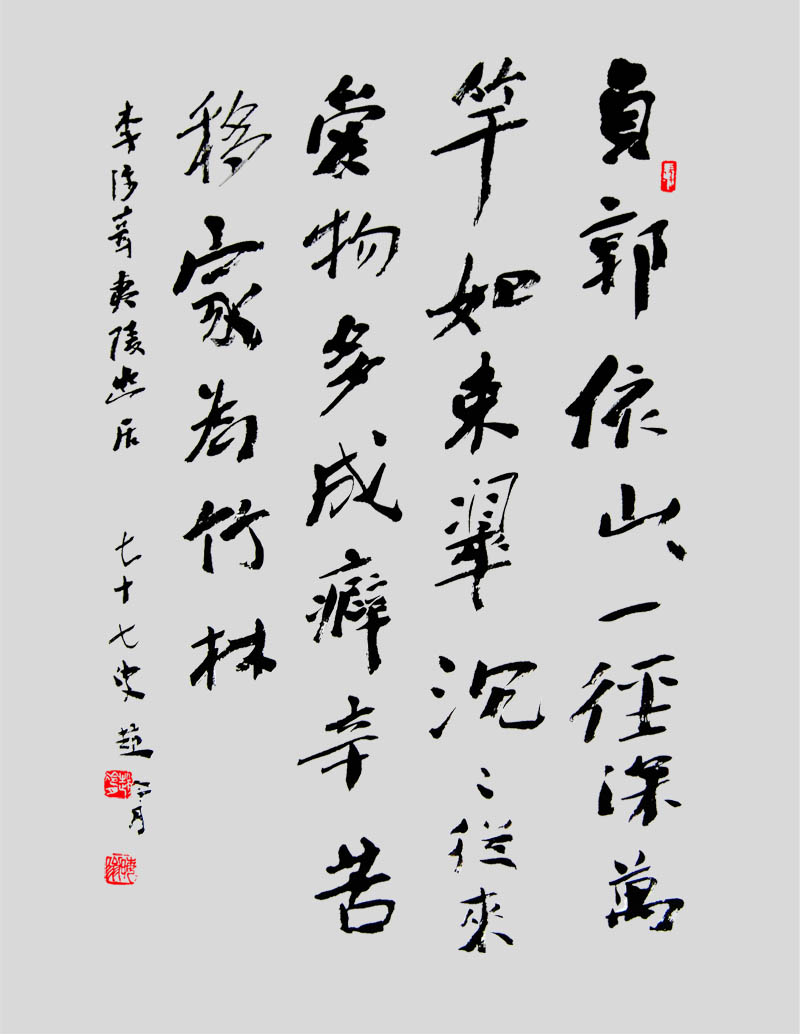 負郭依山一徑深萬
竿如束翠沉〻從來
愛物多成癖辛苦
移家為竹林
李涉葺夷陵幽居 七十七叟趙冷月